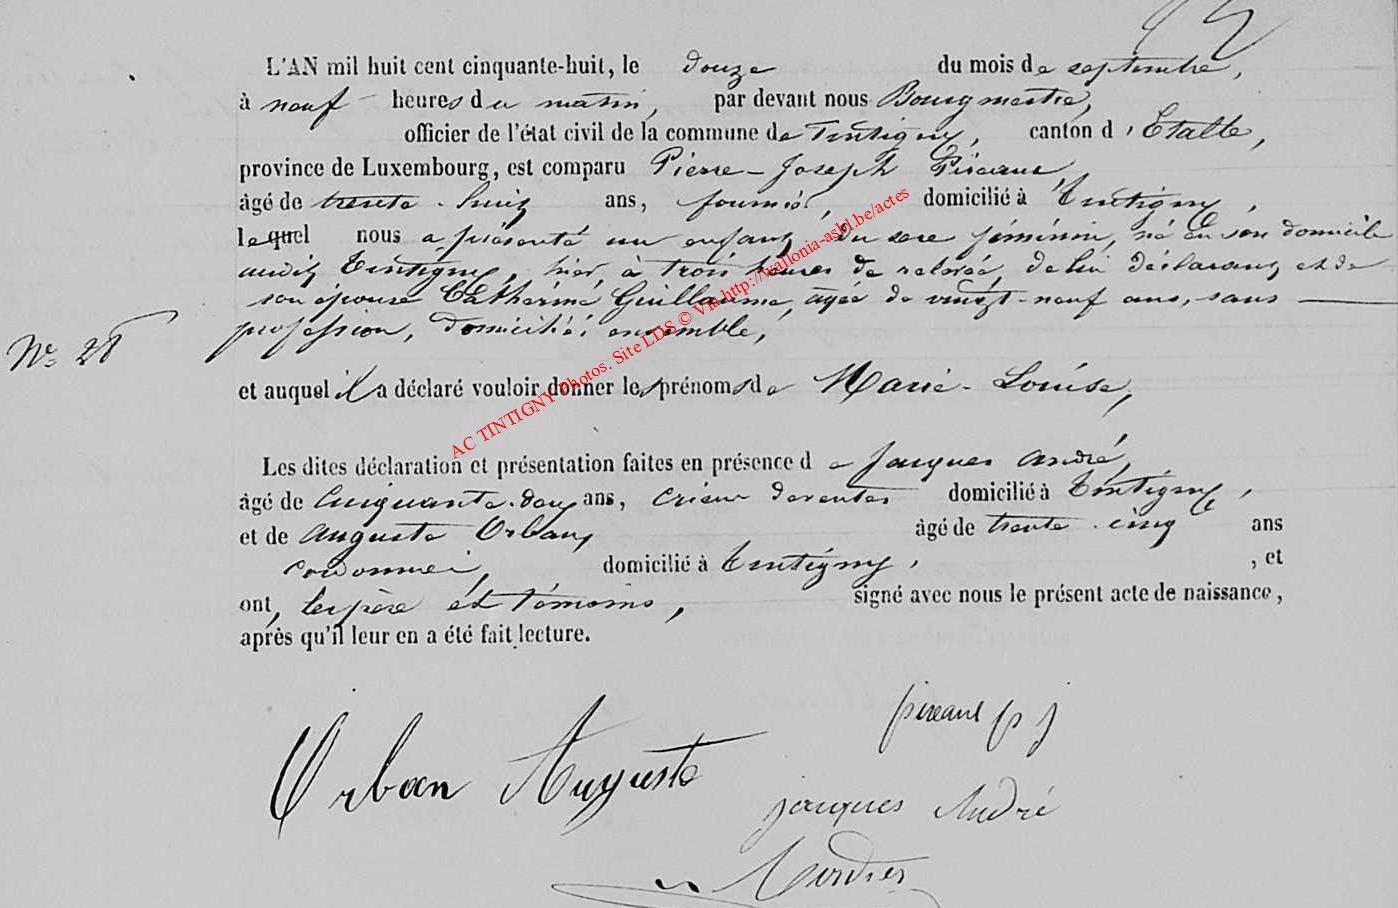 L'AN mil huit cent cinquante-huit, le douze du mois de septembre,
à neuf heures du matin, par devant nous Bourgmestre,
officier de l'état civil de la commune de Tintigny, canton d'Etalle,
province de Luxembourg, est comparu Pierre-Joseph
âgé de trente-huit ans, domicilié à Tintigny,
lequel nous a présenté un enfant du sexe féminin, né en son domicile
audit Tintigny, hier à trois heures de relevée, de lui déclarant et de
son épouse Catherine Guillaume, âgée de vingt-neuf ans, sans
profession, domiciliés ensemble,
No 28
et auquel il a déclaré vouloir donner les prénoms de Marie-Louise,
Les dites déclaration et présentation faites en présence de Jacques André,
âgé de cinquante-deux ans, crieur de ventes domicilié à Tintigny,
et de Auguste Orban, âgé de trente-cinq ans
cordonnier, domicilié à Tintigny, , et
ont, les père et témoins, signé avec nous le présent acte de naissance,
après qu'il leur en a été fait lecture.
p j
Orban Auguste
jacques André
AC TINTIGNY Photos. Site LDS © Via http://wallonia-asbl.be/actes